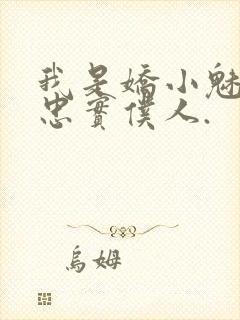 我是嬌小魅
忠實僕人.
烏姆